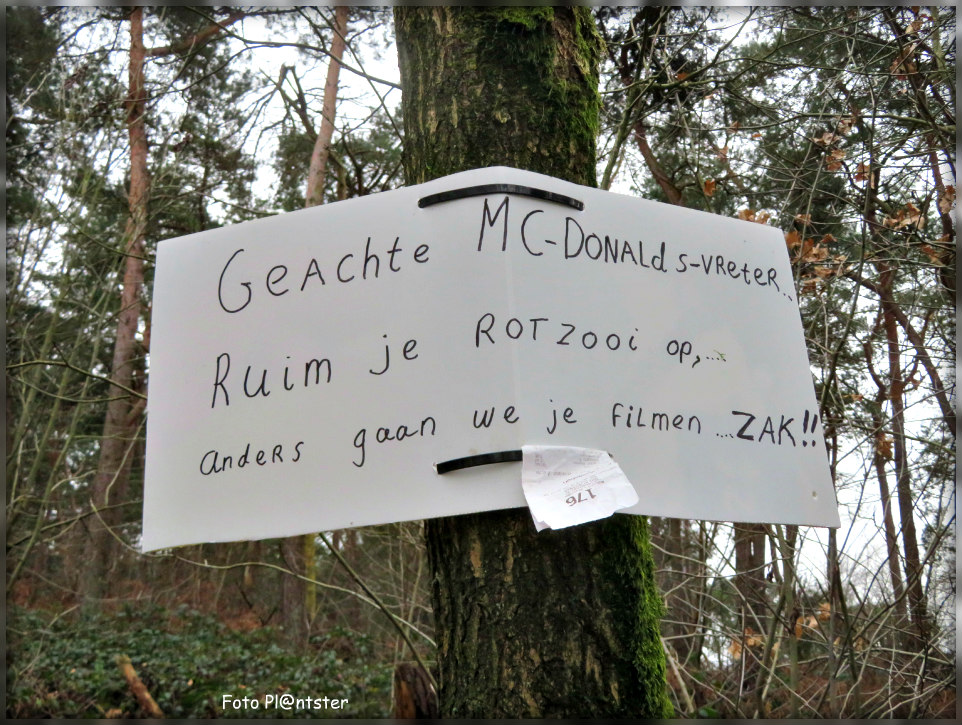 GeAchte MC-DONALds-VReteR..
Ruim je ROTZOOi op,....
anders gaan we je Filmen ...ZAK!!
176
Foto Pl@ntster